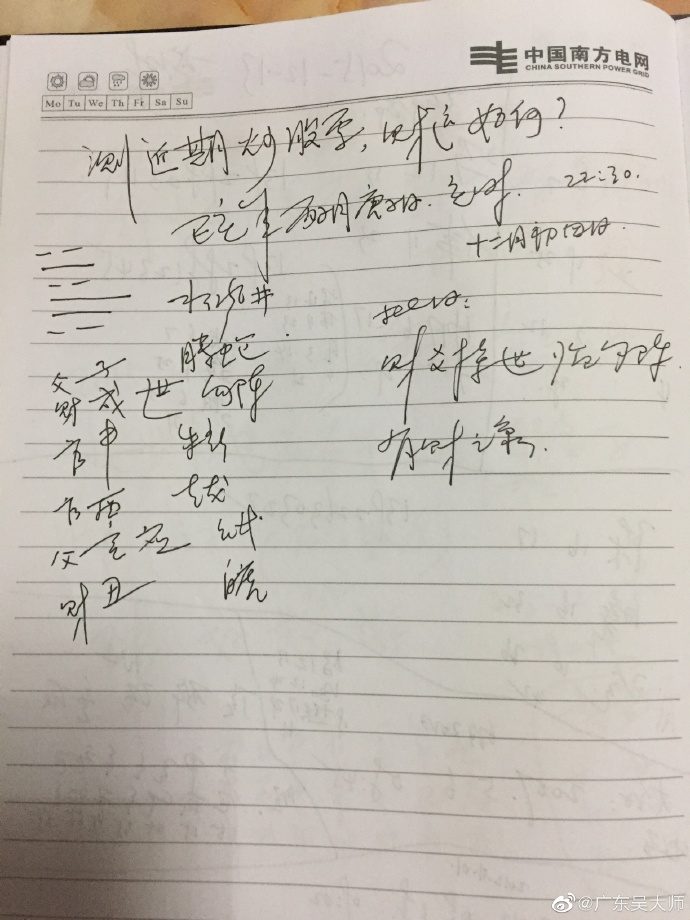 中国南方电网
CHINA SOUTHERN POWER GRID
Mo Tu We Th Fr Sa Su
测近期炒股票,财运如何?
丁亥时. 22:30.
十二月初四日
水风井
螣蛇
父子
财戌世 勾陈
官申 朱雀
官酉 青龙
父亥应 玄武
财丑 白虎
财爻持世临勾陈.
有财之象.
@广东吴大师